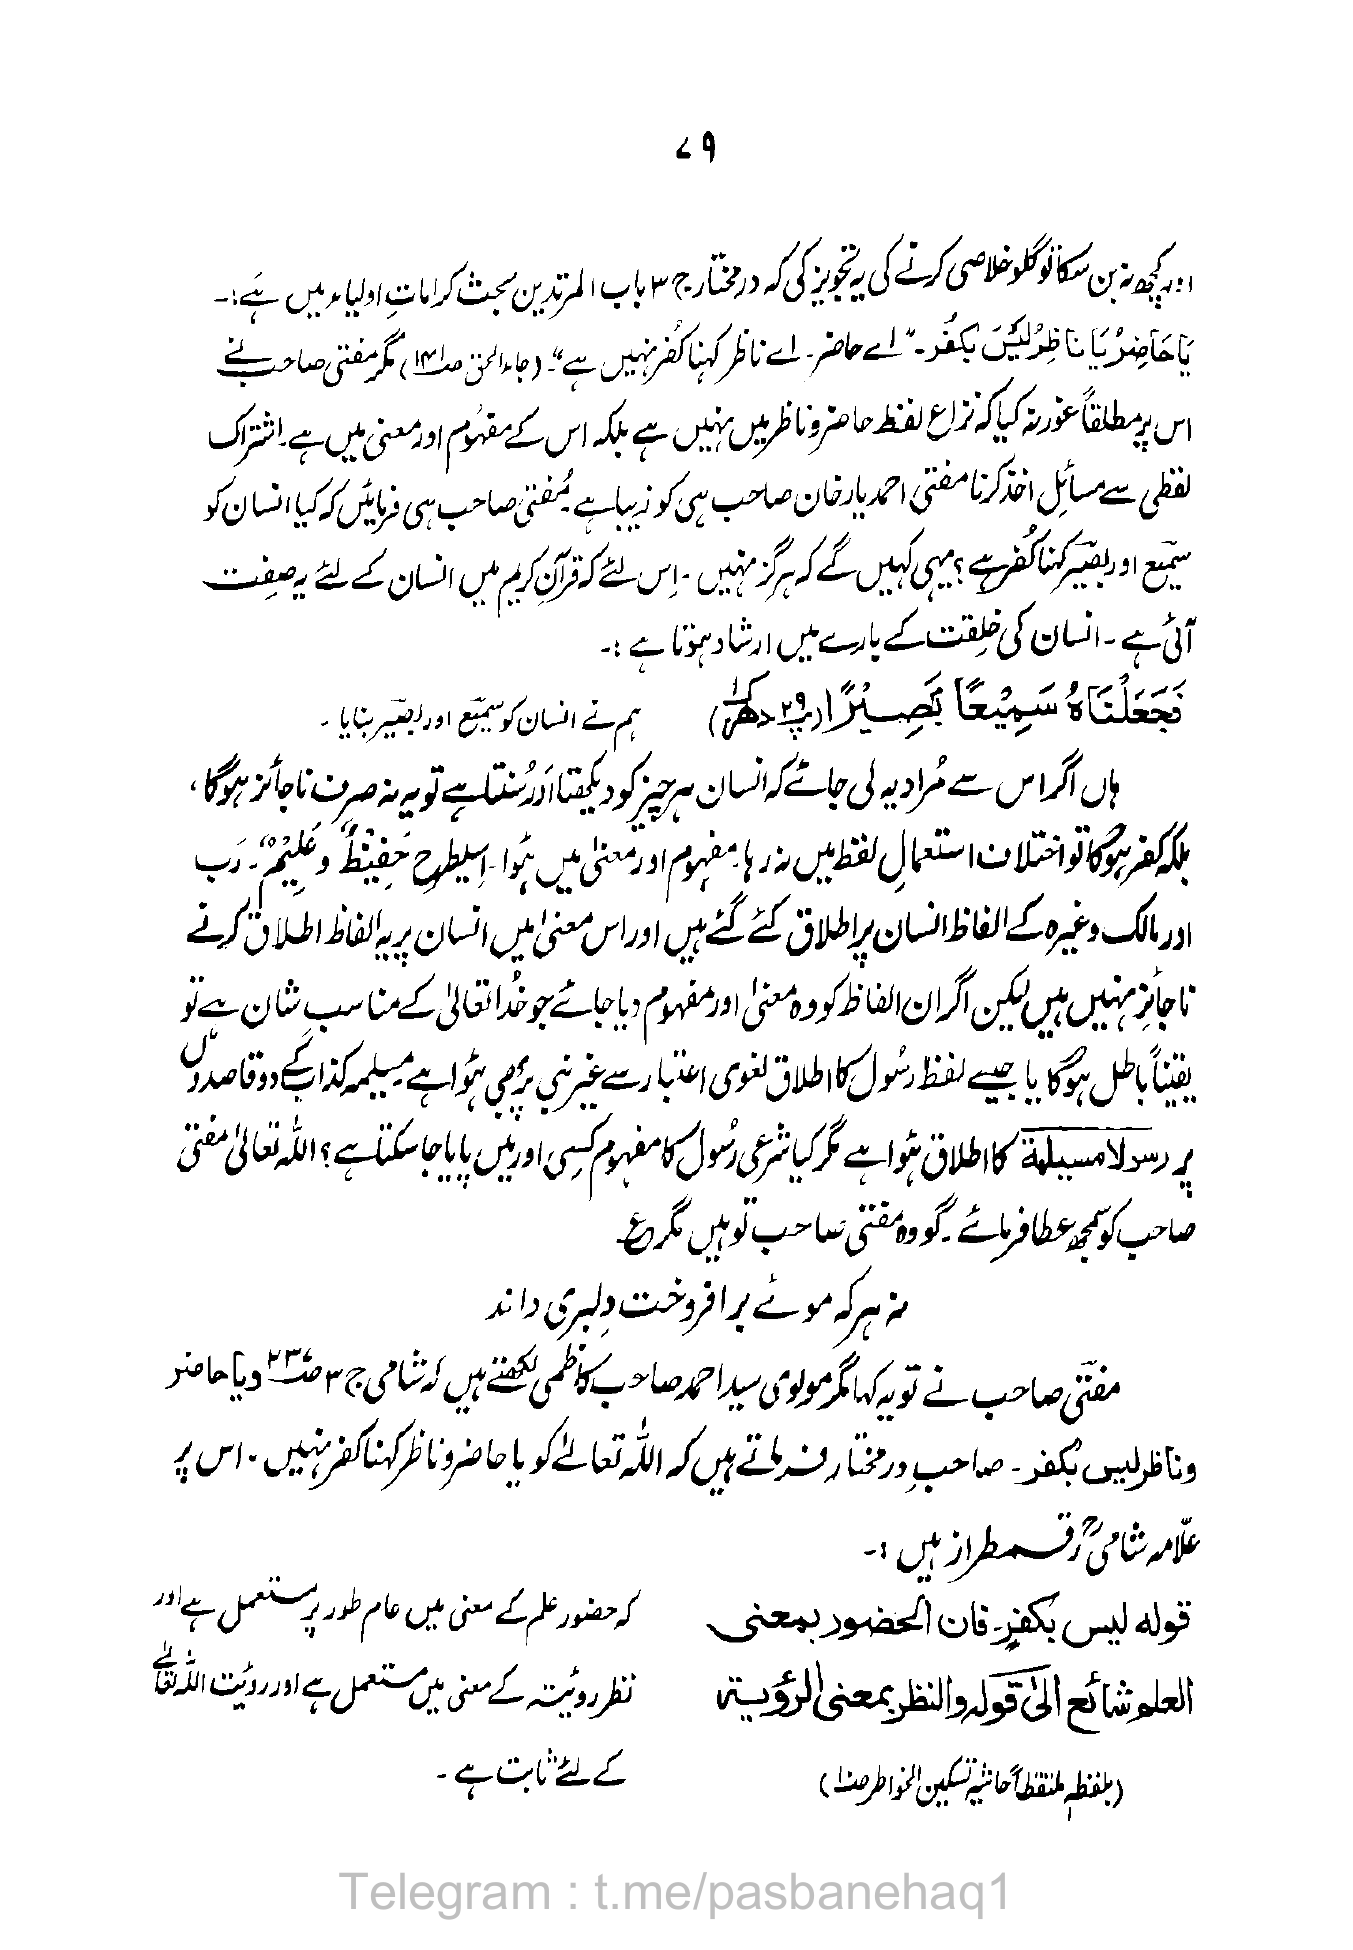 ۷۹
اور کچھ نہ بن سکا تو گلو خلاصی کرنے کی یہ تجویز کی کہ درمختار ج ۳ باب المرتدین بحث کراماتِ اولیاء میں ہے:-
یَا حَاضِرُ یَا نَاظِرُ لَیْسَ بِکُفْرٍ۔ "اے حاضر۔ اے ناظر کہنا کُفر نہیں ہے"۔ (جاء الحق صـ۱۴۱) مگر مفتی صاحب نے
اس پر مطلقاً غور نہ کیا کہ نزاع لفظ حاضر و ناظر میں نہیں ہے بلکہ اس کے مفہُوم اور معنی میں ہے۔ اشتراک
لفظی سے مسائل اخذ کرنا مفتی احمد یار خان صاحب ہی کو زیبا ہے۔ مُفتی صاحب ہی فرمائیں کہ کیا انسان کو
سمیع اور بصیر کہنا کُفر ہے؟ یہی کہیں گے کہ ہرگز نہیں۔ اِس لئے کہ قرآنِ کریم میں انسان کے لئے یہ صِفت
آئی ہے۔ انسان کی خِلقت کے بارے میں ارشاد ہوتا ہے:-
فَجَعَلْنَاهُ سَمِیْعًا بَصِیْرًا (پ ۲۹ دھر ۱) ہم نے انسان کو سمیع اور بصیر بنایا۔
ہاں اگر اس سے مُراد یہ لی جائے کہ انسان ہر چیز کو دیکھتا اور سُنتا ہے تو یہ نہ صرف ناجائز ہوگا،
بلکہ کفر ہوگا تو اختلاف استعمالِ لفظ میں نہ رہا۔ مفہوم اور معنیٰ میں ہُوا۔ اِسیطرح حَفِیْظٌ و عَلِیْمٌ۔ رَب
اور مالک وغیرہ کے الفاظ انسان پر اطلاق کئے گئے ہیں اور اس معنیٰ میں انسان پر یہ الفاظ اطلاق کرنے
ناجائز نہیں ہیں لیکن اگر ان الفاظ کو وہ معنیٰ اور مفہوم دیا جائے جو خُدا تعالیٰ کے مناسب شان ہے تو
یقیناً باطل ہوگا یا جیسے لفظ رسُول کا اطلاق لغوی اعتبار سے غیر نبی پر بھی ہُوا ہے۔ مسیلمہ کذاب کے دو قاصدوں
پر رسولا مسیلمة کا اطلاق ہُوا ہے مگر کیا شرعی رسُول کا مفہوم کسی اور میں پایا جا سکتا ہے؟ اللہ تعالیٰ مفتی
صاحب کو سمجھ عطا فرمائے۔ گو وہ مفتی صاحب تو ہیں مگر ع
نہ ہر کہ موئے برافروخت دِلبری داند
مفتی صاحب نے تو یہ کہا مگر مولوی سید احمد صاحب کاظمی لکھتے ہیں کہ شامی ج ۳ صـ۳۳۷ و یا حاضر
و ناظر لیس بکُفر۔ صاحب درمختار فرماتے ہیں کہ اللہ تعالےٰ کو یا حاضر و ناظر کہنا کفر نہیں۔ اس پر
علّامہ شامیؒ رقمطراز ہیں:-
قوله لیس بکفرٍ۔ فان الحضور بمعنی کہ حضور علم کے معنی میں عام طور پر مستعمل ہے اور
العلم شائع الیٰ قوله والنظر بمعنی الرؤیة نظر روئیتہ کے معنی میں مستعمل ہے اور روئیت اللہ تعالےٰ
(بلفظہٖ ملتقطاً حاشیہ تسکین الخواطر صـ۱) کے لئے ثابت ہے۔
Telegram : t.me/pasbanehaq1